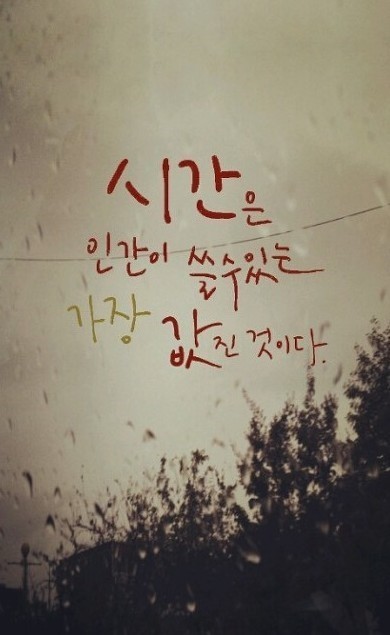 시간은
인간이 쓸수있는
가장 값진 것이다.